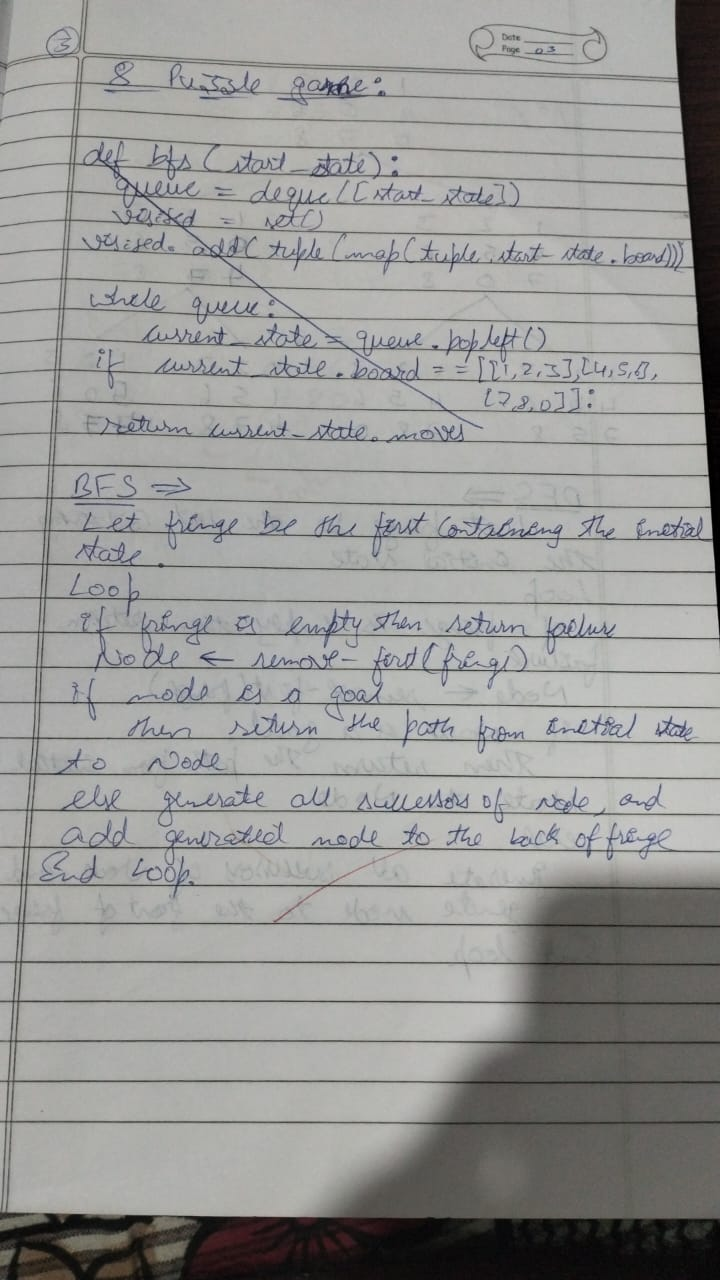 3
Date
Page 03
8 Puzzle game:
def bfs (start_state):
queue = deque([start_state])
visised = set()
visised. add( tuple (map( tuple, start-state.board)))
while queue:
current_state = queue.popleft()
if current_state.board == [[1,2,3],[4,5,6],
[7,8,0]]:
return current-state.moves
BFS ⇒
Let fringe be the first containing the initial
state.
Loop
if fringe is empty then return failure
Node ← remove-first(fringe)
if node is a goal
then return the path from initial state
to Node
else generate all successors of node, and
add generated node to the back of fringe
End Loop.